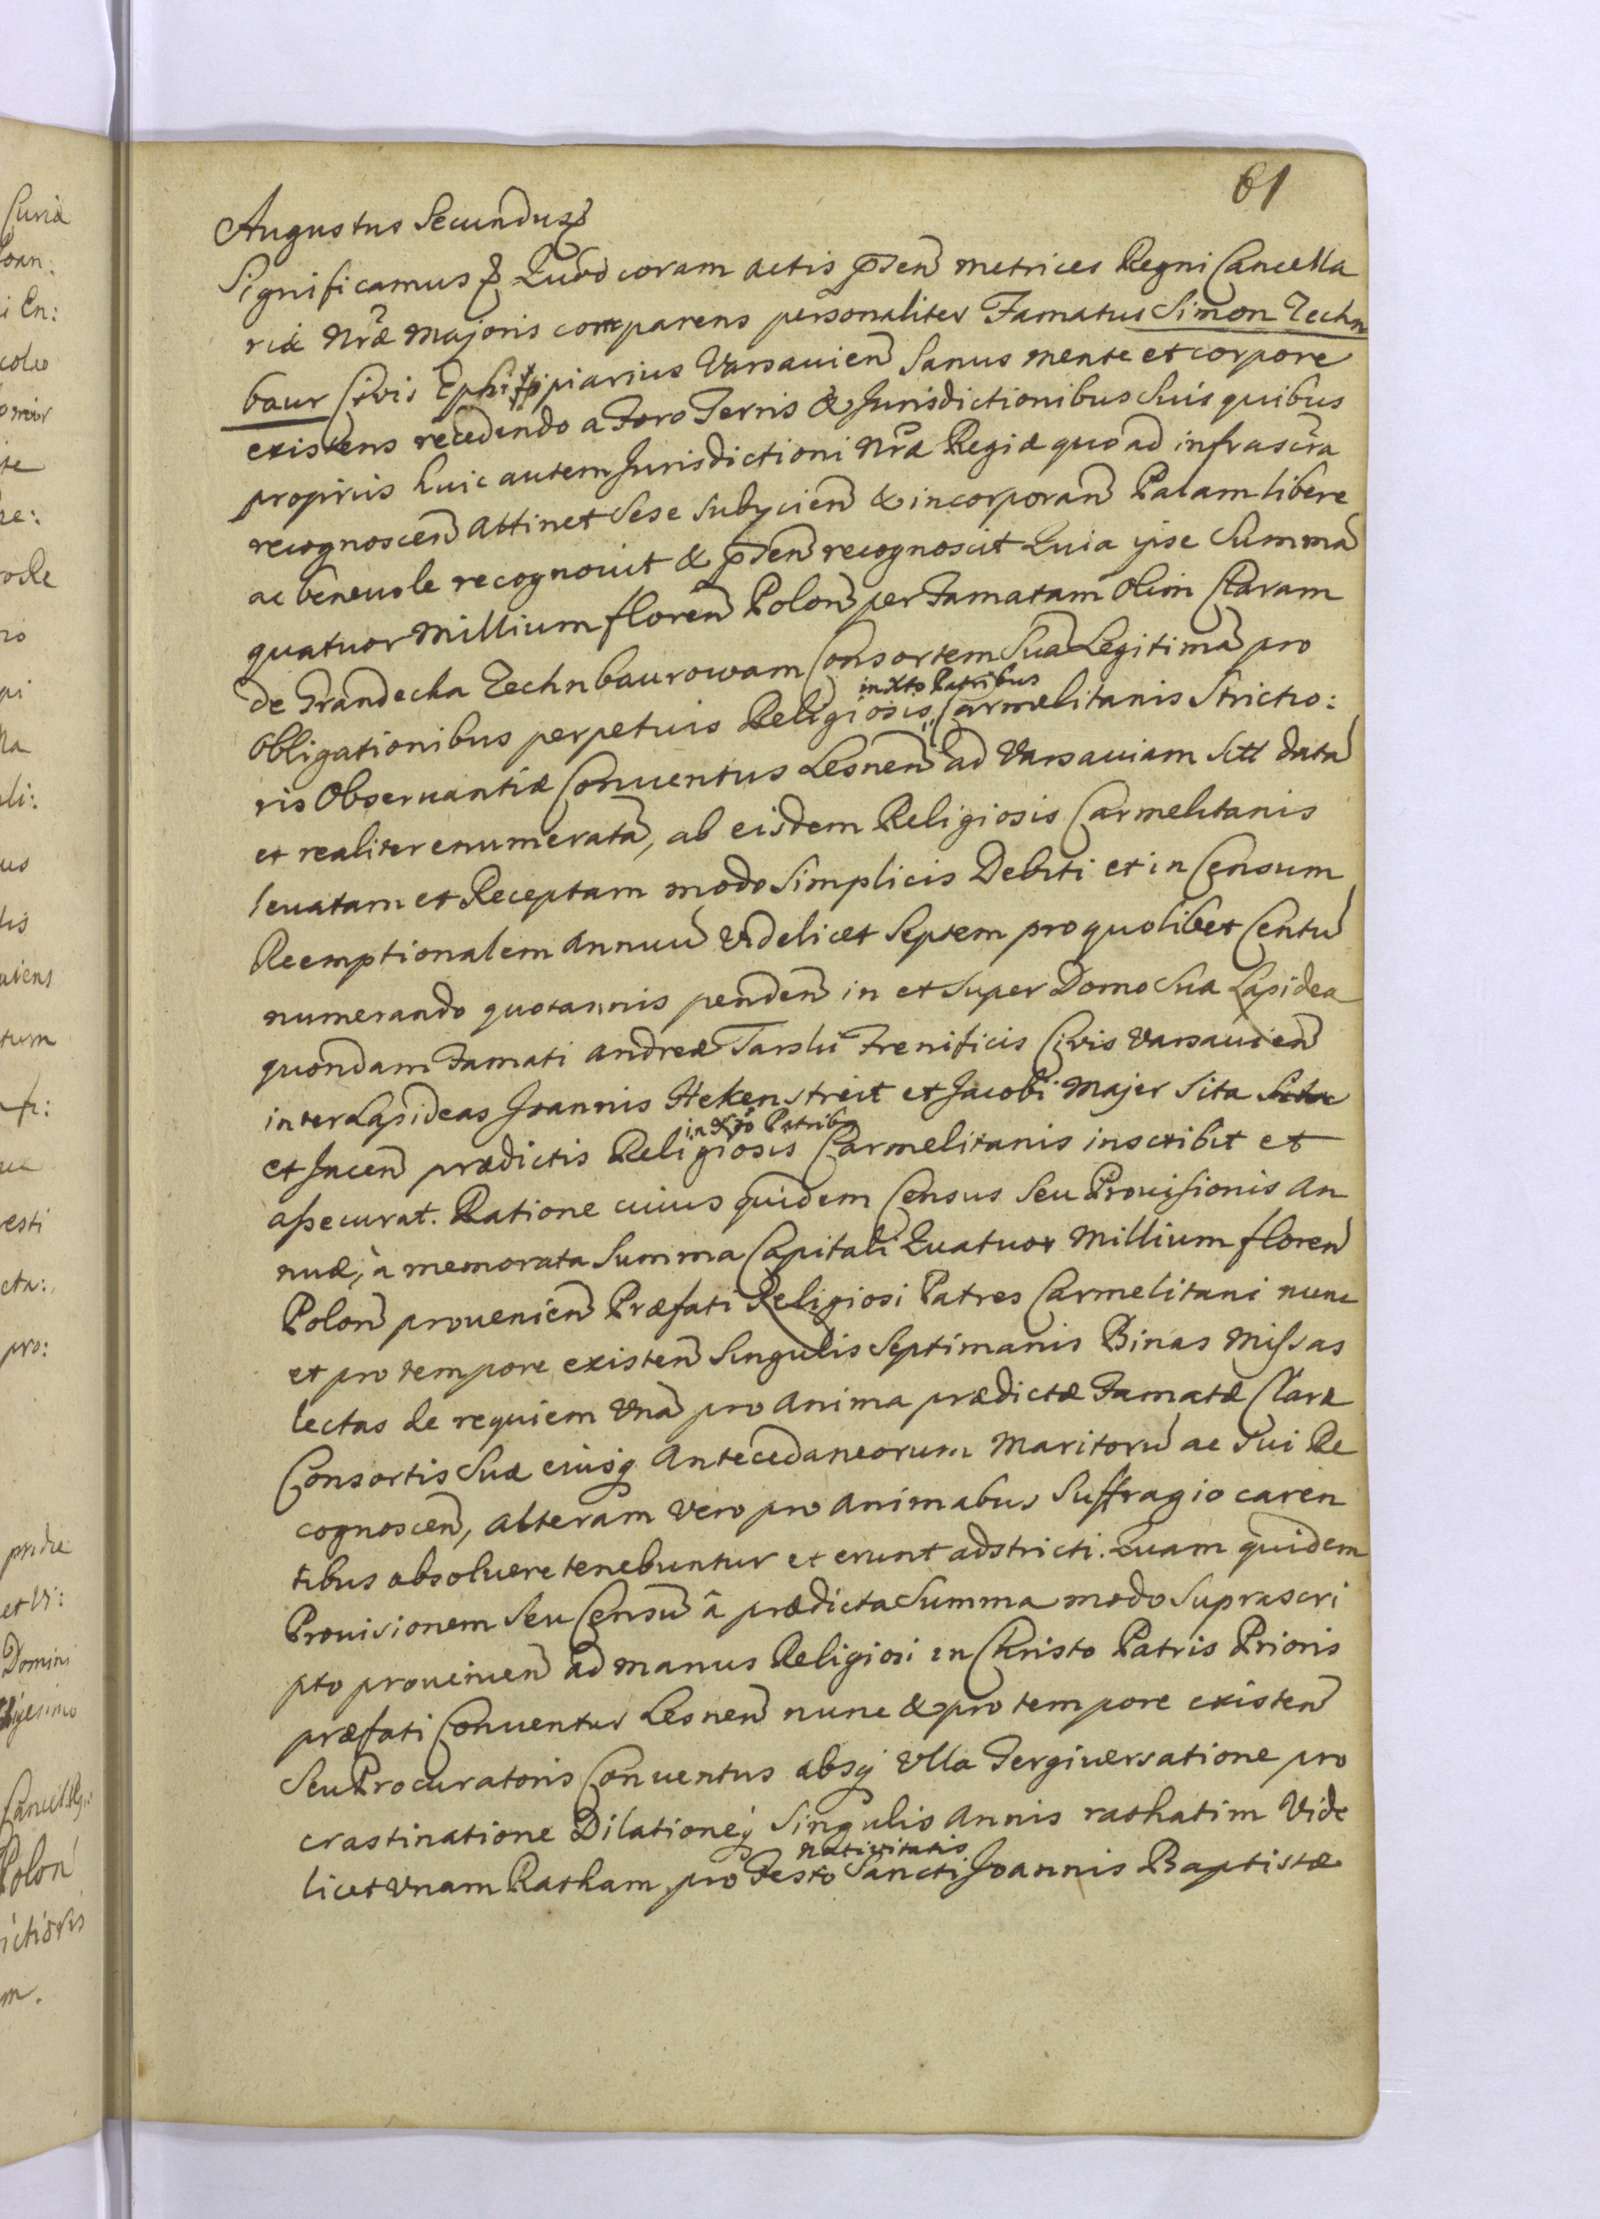 61
Augustus Secundus
Significamus Quod coram actis pñten metrices Regni Cancella
riæ Nræ Majoris comparens personaliter Famatus Simon Zechn
baur Civis Ephippiarius Varsavien Sanus mente et corpore
existens recedendo a Foro Terris & Jurisdictionibus Suis quibus
propriis huic autem Jurisdictioni Nræ Regiæ quo ad infrascrã
recognoscen attinet Sese Subycien & incorporan Palam libere
ac beneuole recognouit & pñten recognoscit Quia ipse Summã
quatuor Millium floren Polon per Famatam Olim Claram
de Grandecka Zechnbaurowam Consortem Suã Legitimã pro
inXto Patribus
Obligationibus perpetuis Religiosis Carmelitanis Strictio:
ris Obseruantiæ Conuentus Lesnen ad Varsauiam Sitt data
et realiter enumeratã, ab eisdem Religiosis Carmelitanis
leuatam et Receptam modo Simplicis Debiti et in Censum
Reemptionalem Annuũ Videlicet Septem pro quolibet Centũ
numerando quotannis penden in et Super Domo Sua Lapidea
quondam Famati Andreæ Tarski Frenificis Civis Varsauien
inter Lapideas Joannis Hekenstreit et Jacobi Majer Sita Sita
in Xto Patrib
et Jacen prædictis Religiosis Carmelitanis inscribit et
assecurat. Ratione cuius quidem Census Seu Prouisionis An
nuæ, à memorata Summa Capitali Quatuor Millium floren
Polon prouenien Præfati Religiosi Patres Carmelitani nunc
et pro tempore existen Singulis Septimanis Binas Missas
lectas de requiem Vnã pro Anima prædictæ Famatæ Claræ
Consortis Suæ eiusq Antecedaneorum Maritorũ ac Sui Re
cognoscen, alteram vero pro animabus Suffragio caren
tibus absoluere tenebuntur et erunt adstricti. Quam quidem
Prouisionem Seu Censũ â prædicta Summa modo Suprascri
pto prouenien ad manus Religiosi in Christo Patris Prioris
præfati Conuentus Lesnen nunc & pro tempore existen
Seu Procuratoris Conuentus absq Vlla Tergiuersatione pro
crastinatione Dilationeq Singulis Annis rathatim Vide
nativitatis
licet Vnam Ratham pro Festo Sancti Joannis Baptistæ